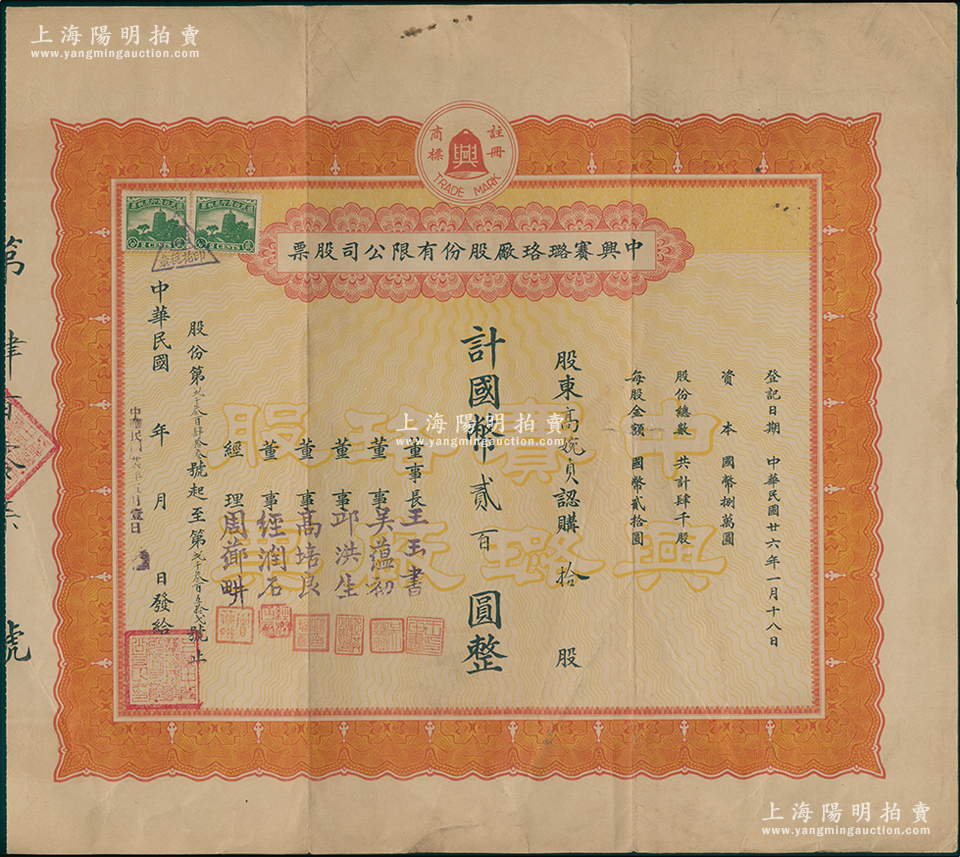 上海陽明拍賣
www.yangmingauction.com
註冊
商標
興
TRADE MARK
中興賽璐珞厰股份有限公司股票
2 CENTS
2 CENTS
登記日期 中華民國廿六年一月十八日
資本 國幣捌萬圓
股份總數 共計肆千股
每股金額 國幣貳拾圓
股東高統貞認購拾股
計國幣貳百圓整
董事長 王玉書
董事 吳蘊初
董事 邱洪生
董事 高培良
董事 經潤石
經理 周薌畊
股份第 號起至第 號止
中華民國 年 月 日發給
第肆百 號
中興賽璐珞厰股票
上海陽明拍賣
www.yangmingauction.com
上海陽明拍賣
www.yangmingauction.com